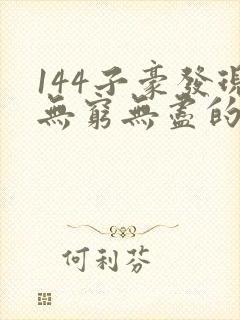 144子豪發現
無窮無盡的
何利芬